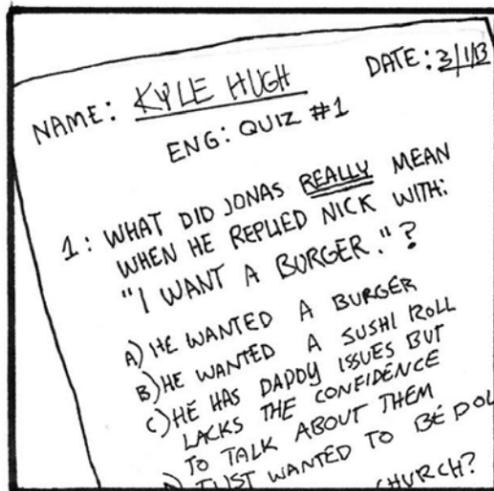 NAME: KYLE HUGH DATE: 3/1/13
ENG: QUIZ #1
1: WHAT DID JONAS REALLY MEAN
WHEN HE REPLIED NICK WITH:
"I WANT A BURGER."?
A) HE WANTED A BURGER
B) HE WANTED A SUSHI ROLL
C) HE HAS DADDY ISSUES BUT
LACKS THE CONFIDENCE
TO TALK ABOUT THEM
JUST WANTED TO BE
CHURCH?